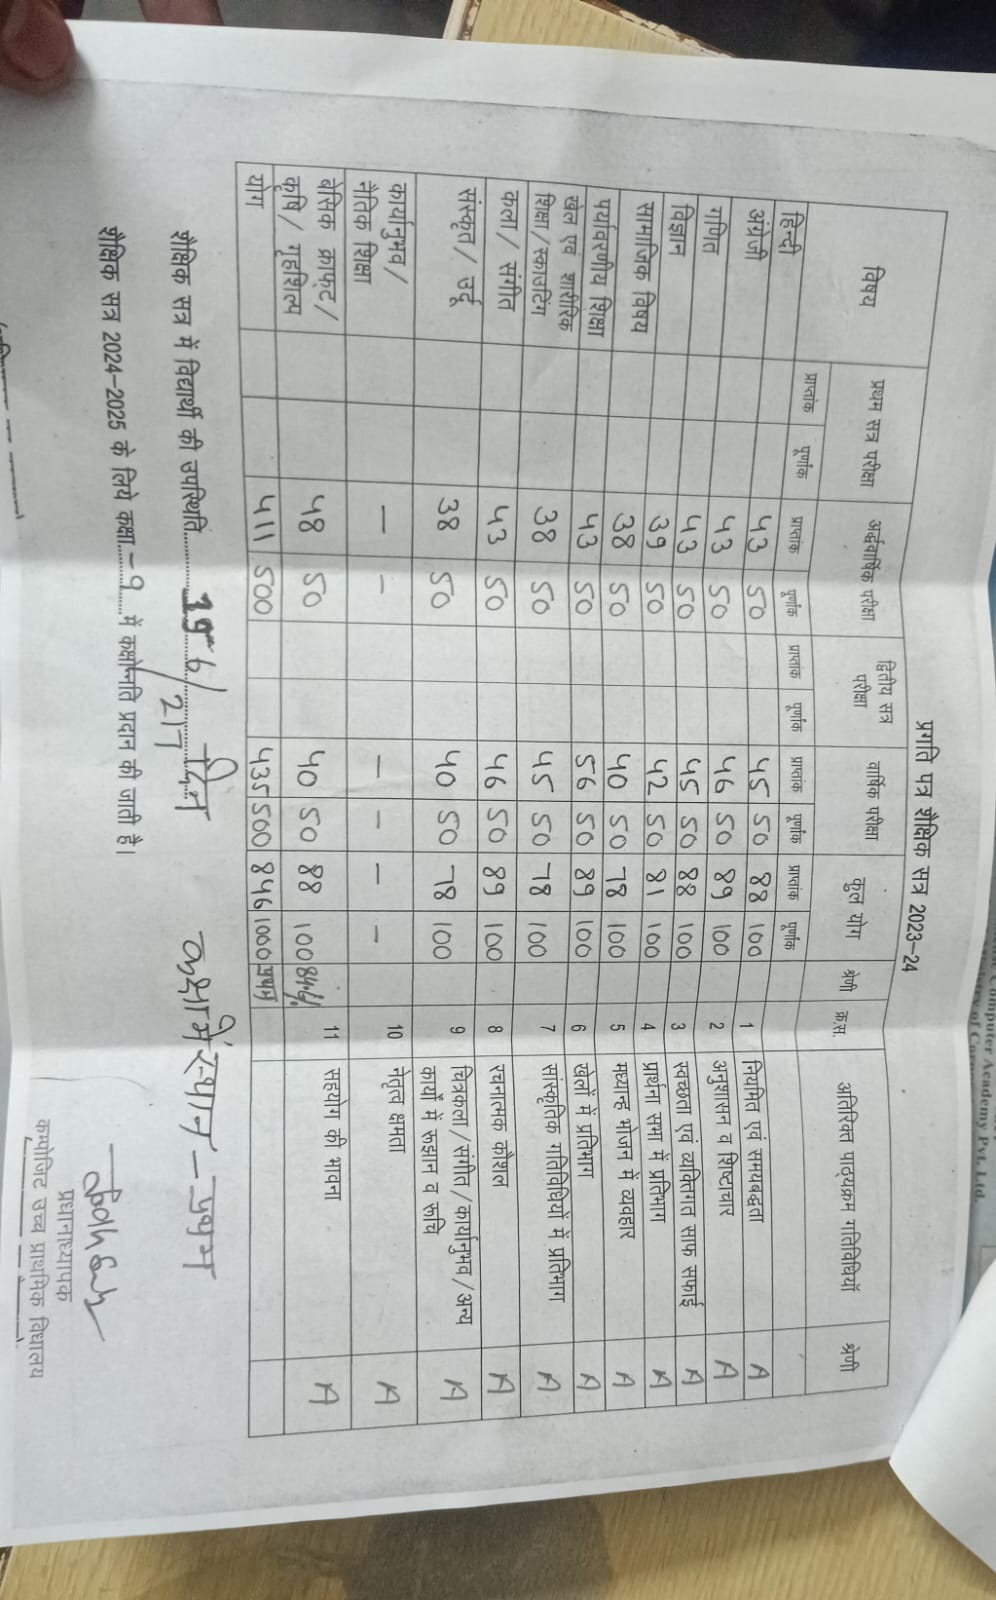 प्रगति पत्र शैक्षिक सत्र 2023–24
विषय प्रथम सत्र परीक्षा अर्द्धवार्षिक परीक्षा द्वितीय सत्र परीक्षा वार्षिक परीक्षा कुल योग श्रेणी क्र.स. अतिरिक्त पाठ्यक्रम गतिविधियॉं श्रेणी
प्राप्तांक पूर्णांक प्राप्तांक पूर्णांक प्राप्तांक पूर्णांक प्राप्तांक पूर्णांक प्राप्तांक पूर्णांक
हिन्दी 43 50 45 50 88 100 1 नियमित एवं समयबद्धता A
अंग्रेजी 43 50 46 50 89 100 2 अनुशासन व शिष्टाचार A
गणित 43 50 45 50 88 100 3 स्वच्छता एवं व्यक्तिगत साफ सफाई A
विज्ञान 39 50 42 50 81 100 4 प्रार्थना सभा में प्रतिभाग A
सामाजिक विषय 38 50 40 50 78 100 5 मध्यान्ह भोजन में व्यवहार A
पर्यावरणीय शिक्षा 43 50 56 50 89 100 6 खेलों में प्रतिभाग A
खेल एवं शारीरिक शिक्षा/स्काउटिंग 38 50 45 50 78 100 7 सांस्कृतिक गतिविधियों में प्रतिभाग A
कला/ संगीत 43 50 46 50 89 100 8 रचनात्मक कौशल A
संस्कृत/ उर्दू 38 50 40 50 78 100 9 चित्रकला/संगीत/कार्यानुभव/अन्य कार्यो में रूझान व रूचि A
कार्यानुभव/ नैतिक शिक्षा – – – – – – 10 नेतृत्व क्षमता A
बेसिक क्राफ्ट/ कृषि/ गृहशिल्प 48 50 40 50 88 100 84% 11 सहयोग की भावना A
योग 411 500 435 500 846 1000 प्रथम
शैक्षिक सत्र में विद्यार्थी की उपस्थिति 196/217 दिन कक्षा में स्थान – प्रथम
शैक्षिक सत्र 2024–2025 के लिये कक्षा – 9 में कक्षोन्नति प्रदान की जाती है।
प्रधानाध्यापक
कम्पोजिट उच्च प्राथमिक विद्यालय